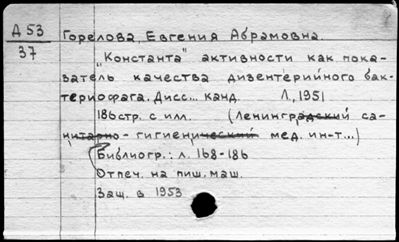 Д 53
37
Горелова, Евгения Абрамовна.
"Константа" активности как пока-
затель качества дизентерийного бак-
териофага. Дисс... канд. Л, 1951
186 стр. с илл. (Ленинградский са-
нитарно-гигиенический мед. ин-т...)
Библиогр.: л. 168-186
Отпеч. на пиш. маш.
Защ. в 1953